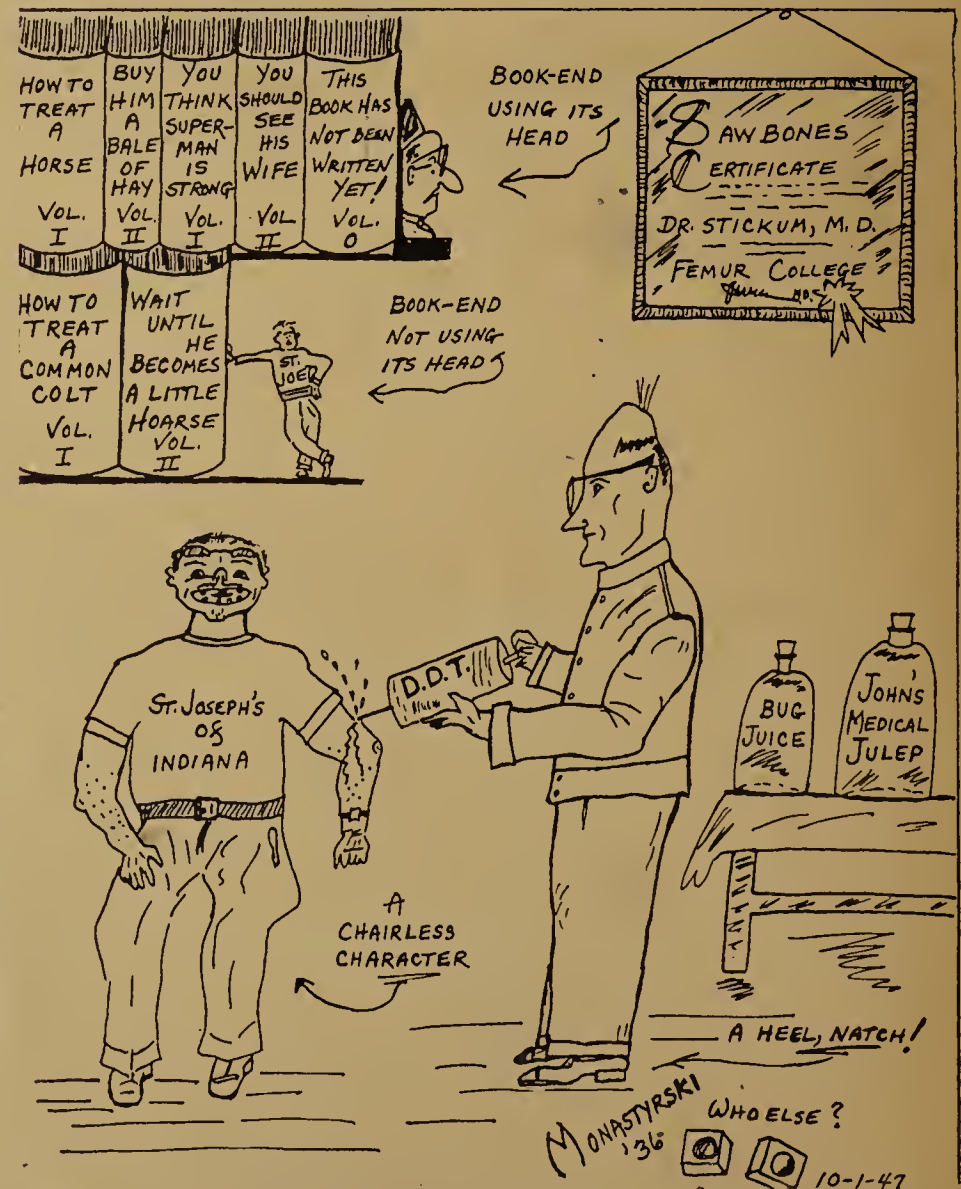 HOW TO
TREAT
A
HORSE
VOL.
I
BUY
HIM
A
BALE
OF
HAY
VOL.
II
YOU
THINK
SUPER-
MAN
IS
STRONG
VOL.
I
YOU
SHOULD
SEE
HIS
WIFE
VOL
II
THIS
BOOK HAS
NOT BEEN
WRITTEN
YET!
VOL.
O
BOOK-END
USING ITS
HEAD
SAWBONES
CERTIFICATE
DR. STICKUM, M.D.
FEMUR COLLEGE
M.D.
HOW TO
TREAT
A
COMMON
COLT
VOL.
I
WAIT
UNTIL
HE
BECOMES
A LITTLE
HOARSE
VOL.
II
ST.
JOE
BOOK-END
NOT USING
ITS HEAD
ST. JOSEPH'S
OF
INDIANA
D.D.T.
BUG
JUICE
JOHN'S
MEDICAL
JULEP
A
CHAIRLESS
CHARACTER
A HEEL, NATCH!
MONASTYRSKI
'36
WHO ELSE?
10-1-47